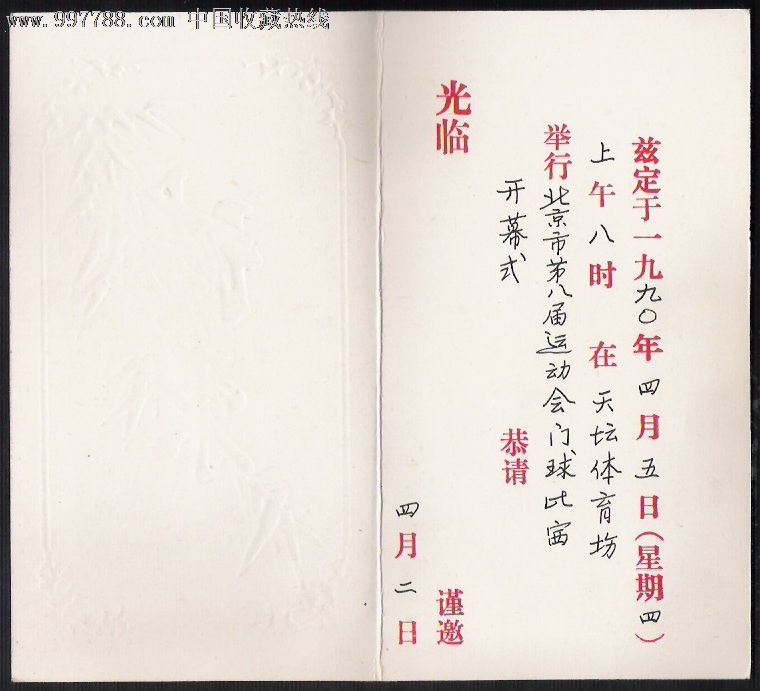 www.997788.com 中国收藏热线
兹定于一九九〇年四月五日(星期四)
上午八时 在天坛体育场
举行北京市第八届运动会门球比赛
开幕式 恭请
光临
谨邀
四月二日